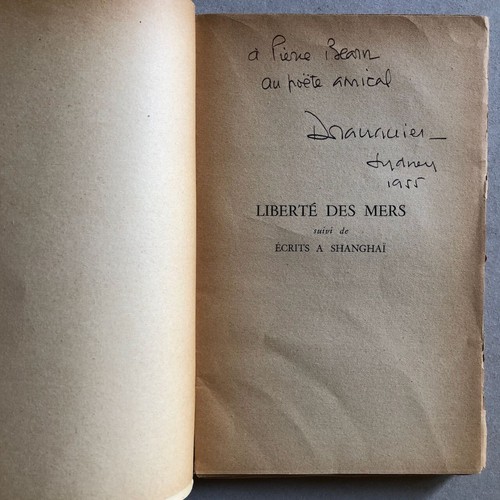 à Pierre Béarn
au poète amical
Sydney
1955
LIBERTÉ DES MERS
suivi de
ÉCRITS A SHANGHAÏ